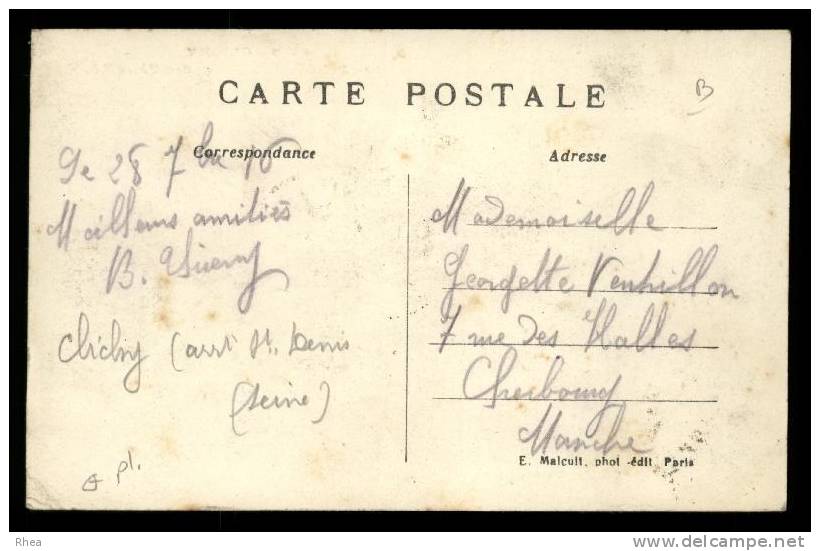 CARTE POSTALE
B
Correspondance
Le 28 7bre 16
Meilleurs amitiés
B.
Clichy (arrt St. Denis
(Seine)
pl.
Adresse
Mademoiselle
Georgette
7 rue des Halles
Cherbourg
Manche
E. Malcuit, phot -édit. Paris
Rhea
www.delcampe.net